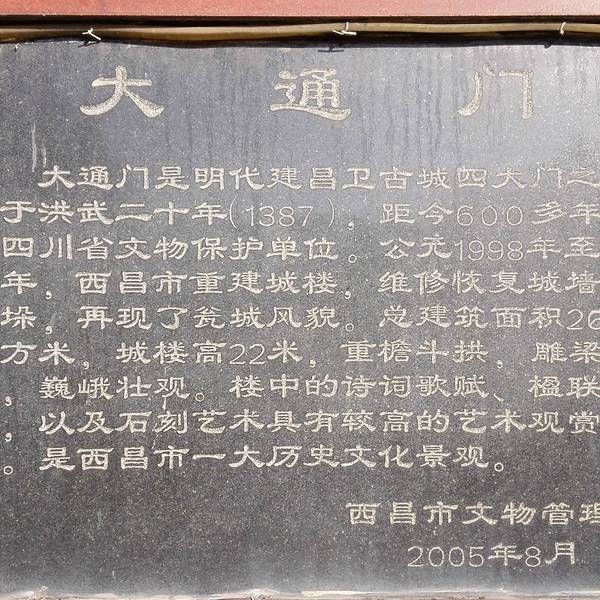 大通门
大通门是明代建昌卫古城四大门之
于洪武二十年(1387)，距今600多年
四川省文物保护单位。公元1998年至
年，西昌市重建城楼，维修恢复城墙
垛，再现了瓮城风貌。总建筑面积26
方米，城楼高22米，重檐斗拱，雕梁
，巍峨壮观。楼中的诗词歌赋、楹联
，以及石刻艺术具有较高的艺术观赏
。是西昌市一大历史文化景观。
西昌市文物管理
2005年8月